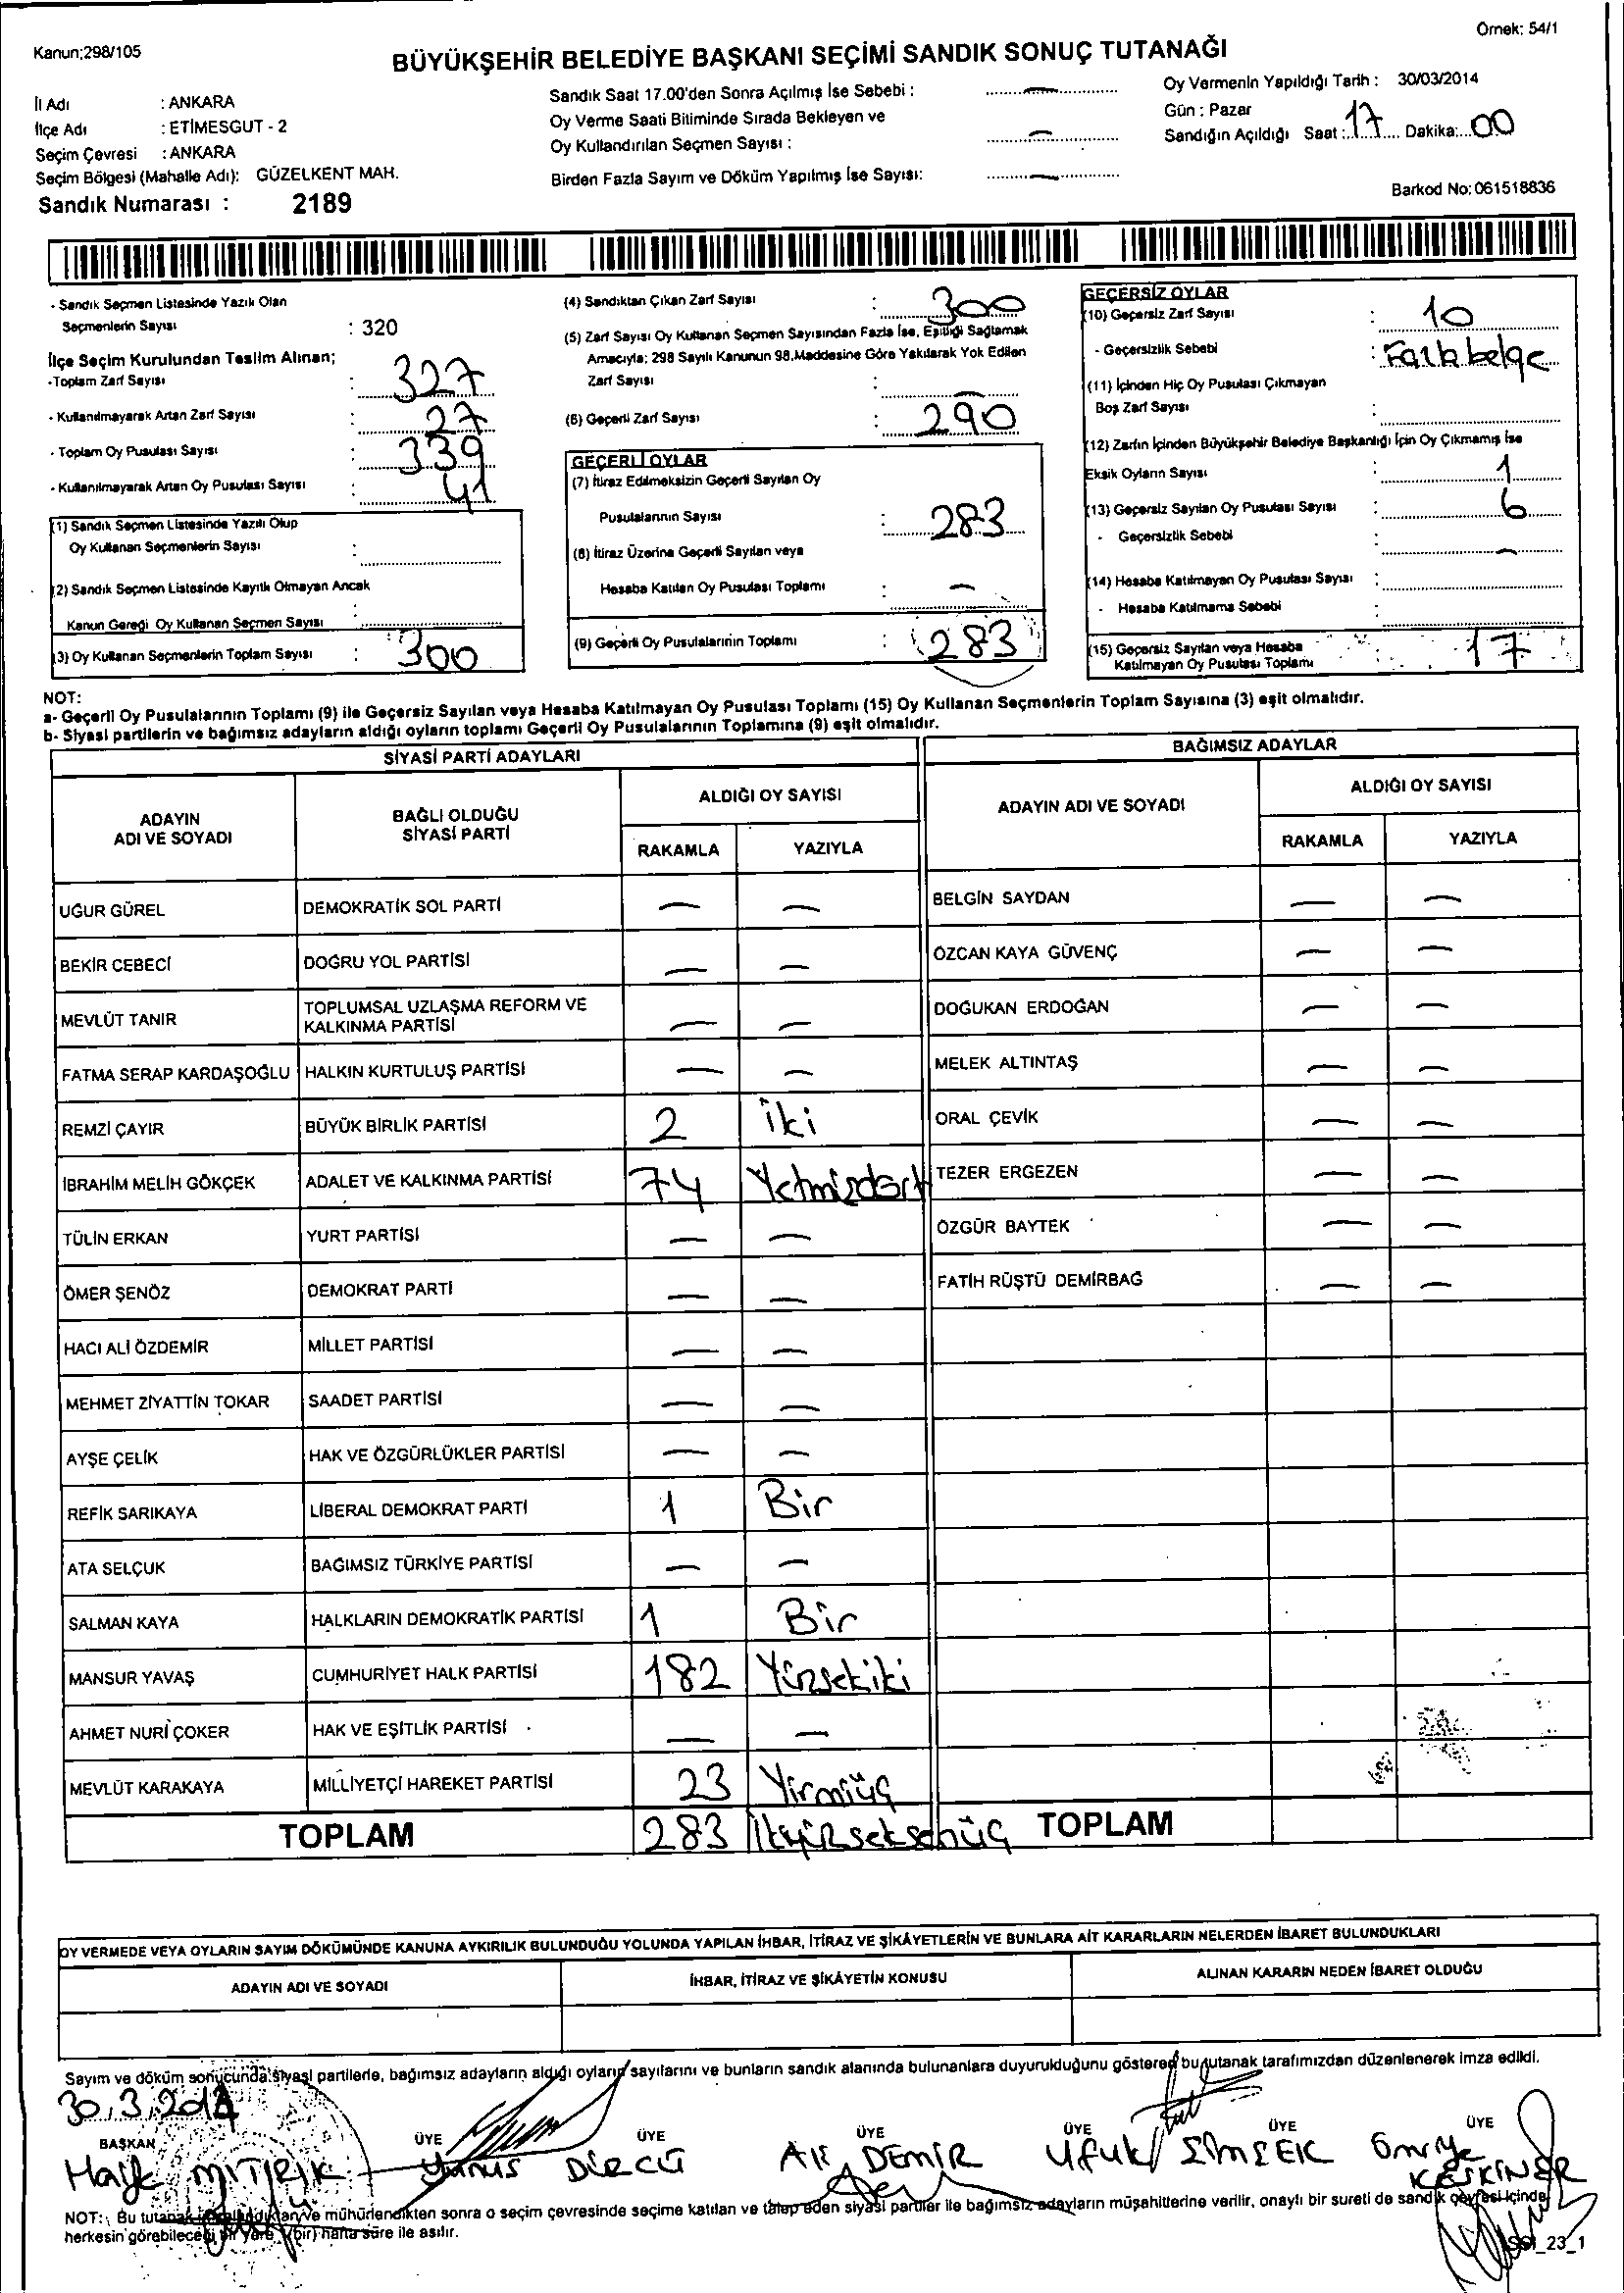 Örnek: 54/1
Kanun;298/105
BÜYÜKŞEHİR BELEDİYE BAŞKANI SEÇİMİ SANDIK SONUÇ TUTANAĞI
İl Adı : ANKARA
İlçe Adı : ETİMESGUT - 2
Seçim Çevresi : ANKARA
Seçim Bölgesi (Mahalle Adı): GÜZELKENT MAH.
Sandık Numarası : 2189
Sandık Saat 17.00'den Sonra Açılmış İse Sebebi : —
Oy Verme Saati Bitiminde Sırada Bekleyen ve
Oy Kullandırılan Seçmen Sayısı : —
Birden Fazla Sayım ve Döküm Yapılmış İse Sayısı: —
Oy Vermenin Yapıldığı Tarih : 30/03/2014
Gün : Pazar
Sandığın Açıldığı Saat : 17 Dakika: 00
Barkod No: 061518836
- Sandık Seçmen Listesinde Yazılı Olan
Seçmenlerin Sayısı : 320
İlçe Seçim Kurulundan Teslim Alınan;
-Toplam Zarf Sayısı : 327
- Kullanılmayarak Artan Zarf Sayısı : 27
- Toplam Oy Pusulası Sayısı : 339
- Kullanılmayarak Artan Oy Pusulası Sayısı : 41
(1) Sandık Seçmen Listesinde Yazılı Olup
Oy Kullanan Seçmenlerin Sayısı :
(2) Sandık Seçmen Listesinde Kayıtlı Olmayan Ancak
Kanun Gereği Oy Kullanan Seçmen Sayısı :
(3) Oy Kullanan Seçmenlerin Toplam Sayısı : 300
(4) Sandıktan Çıkan Zarf Sayısı : 300
(5) Zarf Sayısı Oy Kullanan Seçmen Sayısından Fazla İse, Eşitliği Sağlamak
Amacıyla; 298 Sayılı Kanunun 98.Maddesine Göre Yakılarak Yok Edilen
Zarf Sayısı : —
(6) Geçerli Zarf Sayısı : 290
GEÇERLİ OYLAR
(7) İtiraz Edilmeksizin Geçerli Sayılan Oy
Pusulalarının Sayısı : 283
(8) İtiraz Üzerine Geçerli Sayılan veya
Hesaba Katılan Oy Pusulası Toplamı : —
(9) Geçerli Oy Pusulalarının Toplamı : 283
GEÇERSİZ OYLAR
(10) Geçersiz Zarf Sayısı : 10
- Geçersizlik Sebebi : Farklı belge
(11) İçinden Hiç Oy Pusulası Çıkmayan
Boş Zarf Sayısı :
(12) Zarfın İçinden Büyükşehir Belediye Başkanlığı İçin Oy Çıkmamış İse
Eksik Oyların Sayısı : 1
(13) Geçersiz Sayılan Oy Pusulası Sayısı : 6
- Geçersizlik Sebebi : —
(14) Hesaba Katılmayan Oy Pusulası Sayısı :
- Hesaba Katılmama Sebebi :
(15) Geçersiz Sayılan veya Hesaba
Katılmayan Oy Pusulası Toplamı : 17
NOT:
a- Geçerli Oy Pusulalarının Toplamı (9) ile Geçersiz Sayılan veya Hesaba Katılmayan Oy Pusulası Toplamı (15) Oy Kullanan Seçmenlerin Toplam Sayısına (3) eşit olmalıdır.
b- Siyasi partilerin ve bağımsız adayların aldığı oyların toplamı Geçerli Oy Pusulalarının Toplamına (9) eşit olmalıdır.
SİYASİ PARTİ ADAYLARI
ADAYIN ADI VE SOYADI
BAĞLI OLDUĞU SİYASİ PARTİ
ALDIĞI OY SAYISI
RAKAMLA YAZIYLA
UĞUR GÜREL DEMOKRATİK SOL PARTİ — —
BEKİR CEBECİ DOĞRU YOL PARTİSİ — —
MEVLÜT TANIR TOPLUMSAL UZLAŞMA REFORM VE KALKINMA PARTİSİ — —
FATMA SERAP KARDAŞOĞLU HALKIN KURTULUŞ PARTİSİ — —
REMZİ ÇAYIR BÜYÜK BİRLİK PARTİSİ 2 iki
İBRAHİM MELİH GÖKÇEK ADALET VE KALKINMA PARTİSİ 74 Yetmişdört
TÜLİN ERKAN YURT PARTİSİ — —
ÖMER ŞENÖZ DEMOKRAT PARTİ — —
HACI ALİ ÖZDEMİR MİLLET PARTİSİ — —
MEHMET ZİYATTİN TOKAR SAADET PARTİSİ — —
AYŞE ÇELİK HAK VE ÖZGÜRLÜKLER PARTİSİ — —
REFİK SARIKAYA LİBERAL DEMOKRAT PARTİ 1 Bir
ATA SELÇUK BAĞIMSIZ TÜRKİYE PARTİSİ — —
SALMAN KAYA HALKLARIN DEMOKRATİK PARTİSİ 1 Bir
MANSUR YAVAŞ CUMHURİYET HALK PARTİSİ 182 Yüzsekiki
AHMET NURİ ÇOKER HAK VE EŞİTLİK PARTİSİ — —
MEVLÜT KARAKAYA MİLLİYETÇİ HAREKET PARTİSİ 23 Yirmiüç
TOPLAM 283 İkiyüzseksenüç
BAĞIMSIZ ADAYLAR
ADAYIN ADI VE SOYADI
ALDIĞI OY SAYISI
RAKAMLA YAZIYLA
BELGİN SAYDAN — —
ÖZCAN KAYA GÜVENÇ — —
DOĞUKAN ERDOĞAN — —
MELEK ALTINTAŞ — —
ORAL ÇEVİK — —
TEZER ERGEZEN — —
ÖZGÜR BAYTEK — —
FATİH RÜŞTÜ DEMİRBAĞ — —
TOPLAM
OY VERMEDE VEYA OYLARIN SAYIM DÖKÜMÜNDE KANUNA AYKIRILIK BULUNDUĞU YOLUNDA YAPILAN İHBAR, İTİRAZ VE ŞİKÂYETLERİN VE BUNLARA AİT KARARLARIN NELERDEN İBARET BULUNDUKLARI
ADAYIN ADI VE SOYADI İHBAR, İTİRAZ VE ŞİKÂYETİN KONUSU ALINAN KARARIN NEDEN İBARET OLDUĞU
Sayım ve döküm sonucunda siyasi partilerle, bağımsız adayların aldığı oyların sayılarını ve bunların sandık alanında bulunanlara duyurulduğunu gösteren bu tutanak tarafımızdan düzenlenerek imza edildi.
30.3.2014
BAŞKAN ÜYE ÜYE ÜYE ÜYE ÜYE ÜYE
Yunus DİRCÜ Ali DEMİR Ufuk ŞİMŞEK Emriye
KESKİNER
NOT: Bu tutanak mühürlendikten sonra o seçim çevresinde seçime katılan ve talep eden siyasi partiler ile bağımsız adayların müşahitlerine verilir, onaylı bir sureti de sandık çevresi içinde
herkesin görebileceği bir yere (bir) hafta süre ile asılır.
23_1